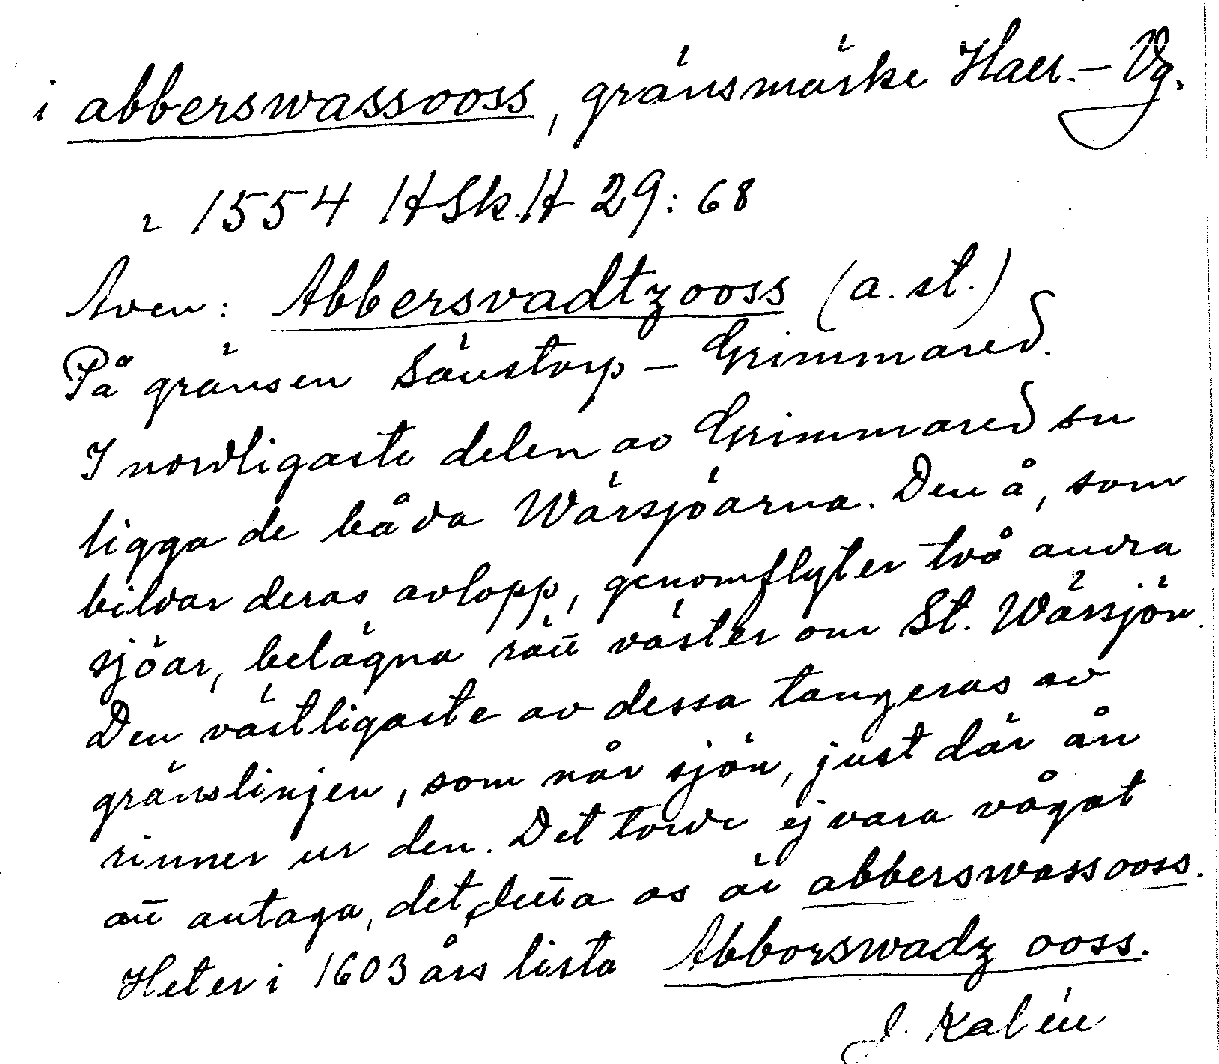 i abberswassooss, gränsmärke Hall.–Vg.
1554 HSk.H 29:68
Även: Abbersvadtzooss (a. st.)
På gränsen Sävstorp – Grimmared.
I nordligaste delen av Grimmared sn
ligga de båda Wärsjöarna. Den å, som
bildar deras avlopp, genomflyter två andra
sjöar, belägna rätt väster om St. Wärsjön.
Den västligaste av dessa tangeras av
gränslinjen, som når sjön, just där ån
rinner ur den. Det torde ej vara vågat
att antaga, det detta os är abberswassooss.
Heter i 1603 års lista Abborswadz ooss.
J. Kalén